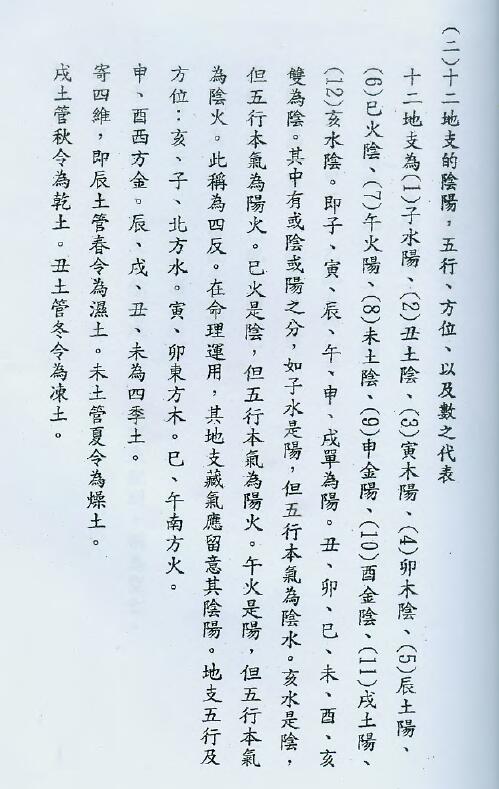 (二)十二地支的陰陽,五行、方位、以及數之代表
十二地支為(1)子水陽、(2)丑土陰、(3)寅木陽、(4)卯木陰、(5)辰土陽、
(6)巳火陰、(7)午火陽、(8)未土陰、(9)申金陽、(10)酉金陰、(11)戌土陽、
(12)亥水陰。即子、寅、辰、午、申、戌單為陽。丑、卯、巳、未、酉、亥
雙為陰。其中有或陰或陽之分,如子水是陽,但五行本氣為陰水。亥水是陰,
但五行本氣為陽火。巳火是陰,但五行本氣為陽火。午火是陽,但五行本氣
為陰火。此稱為四反。在命理運用,其地支藏氣應留意其陰陽。地支五行及
方位:亥、子、北方水。寅、卯東方木。巳、午南方火。
申、酉西方金。辰、戌、丑、未為四季土。
寄四維,即辰土管春令為濕土。未土管夏令為燥土。
戌土管秋令為乾土。丑土管冬令為凍土。